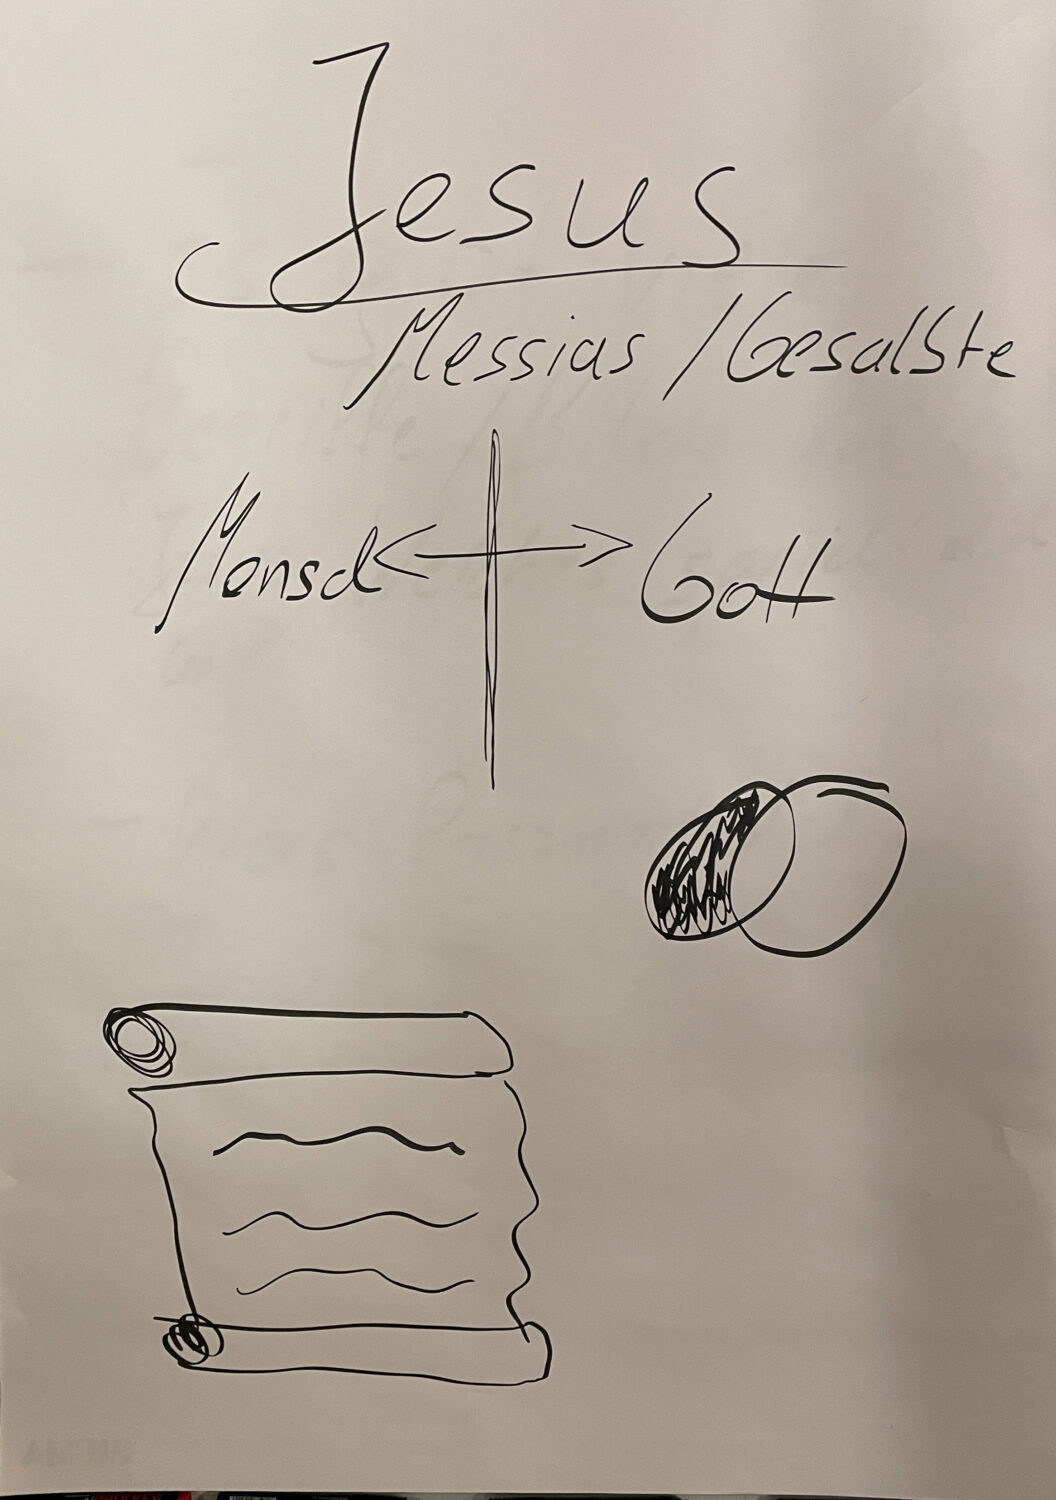 Jesus
Messias / Gesalbte
Mensch Gott
SIGMA